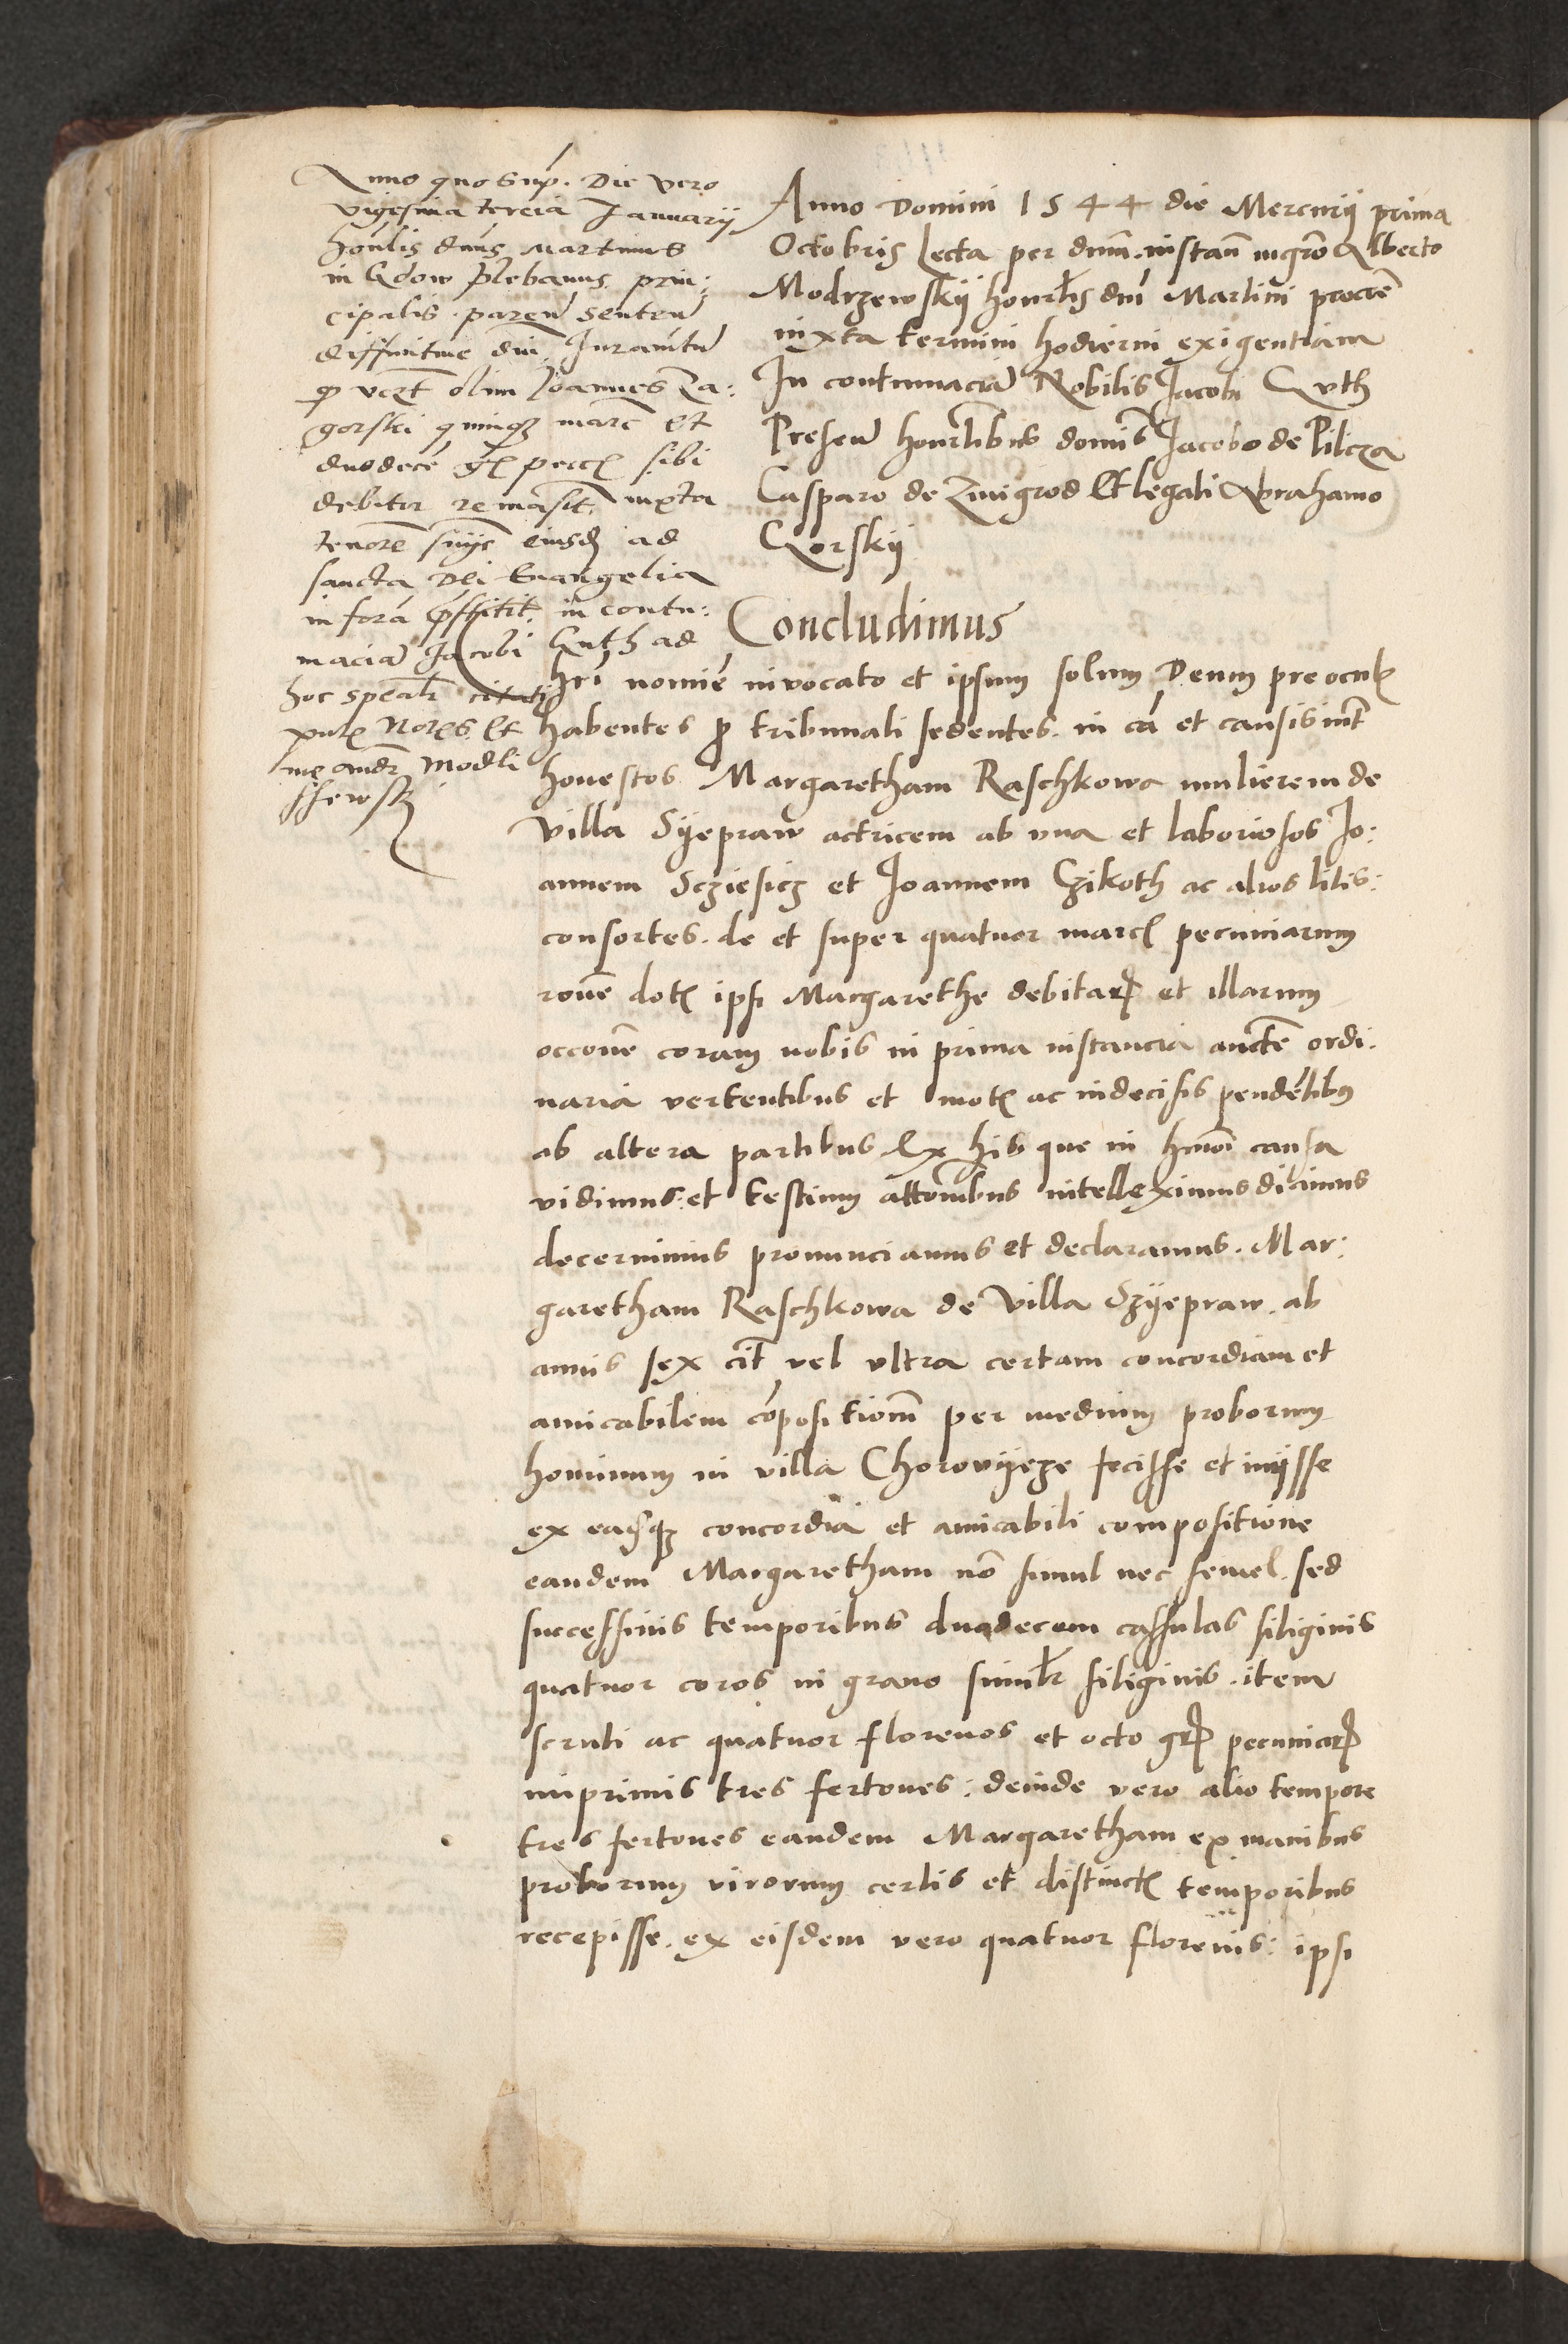 Anno quo supra. Die vero
vigesima tercia Januarij
honlis dnus Martinus
in Gdow plebanus prin:
cipalis. paren senten
diffinitive dni Juramtu
q vert olim Joannes Za:
gorski quinq marc et
duodece gr pecc sibi
debitor remasit. iuxta
tenore sniye eiusd ad
sancta Dei Evangelia
in fora prestitit. in contu:
macia Jacobi Guth ad
hoc spealr citati
pntx Nores. Et
me andr Modli
ssewsk
Anno Domini 1544 die Mercurij prima
Octobris Lecta per dnm. instan mgro Alberto
Modrzewskij honrlis dni Martini procre
iuxta termini hodierni exigentiam
In contumacia Nobilis Jacobi Guth
Presen honrlibus domis Jacobo de Pilcza
Casparo de Zmigrod Et legali Abrahamo
Gorskij
Concludimus
Xri nomie invocato et ipsum solum Deum pre oculx
habentes p tribunali sedentes. in ca et causis int
honestos Margaretham Raschkowa mulierem de
villa Syepraw actricem ab una et laboriosos Jo:
annem Scziesicz et Joannem Czikoth ac alios litis:
consortes. de et super quatuor marcx pecuniarum
rone dotx ipsi Margarethe debitarx et illarum
occone coram nobis in prima instancia aucte ordi:
naria vertentibus et motx ac indecisis pendetibus
ab altera partibus. Ex his que in hmoi causa
vidimus: et testium attonibus intelleximus dicimus
decernimus pronunciamus et declaramus. Mar:
garetham Raschkowa de villa Szyepraw. ab
annis sex cit vel ultra certam concordiam et
amicabilem copositiom per medium proborum
hominum in villa Chorovyeze fecisse et inijsse
ex eadq concordia et amicabili compositione
eandem Margaretham no simul nec semel. sed
successivis temporibus duodecem cassulas siliginis
quatuor coros in grano similr siliginis. item
scruti ac quatuor florenos et octo grx pecuniarx
inprimis tres fertones: deinde vero alio tempore
tres fertones eandem Margaretham ex manibus
proborum virorum certis et distinctx temporibus
recepisse. ex eisdem vero quatuor florenis: ipsi